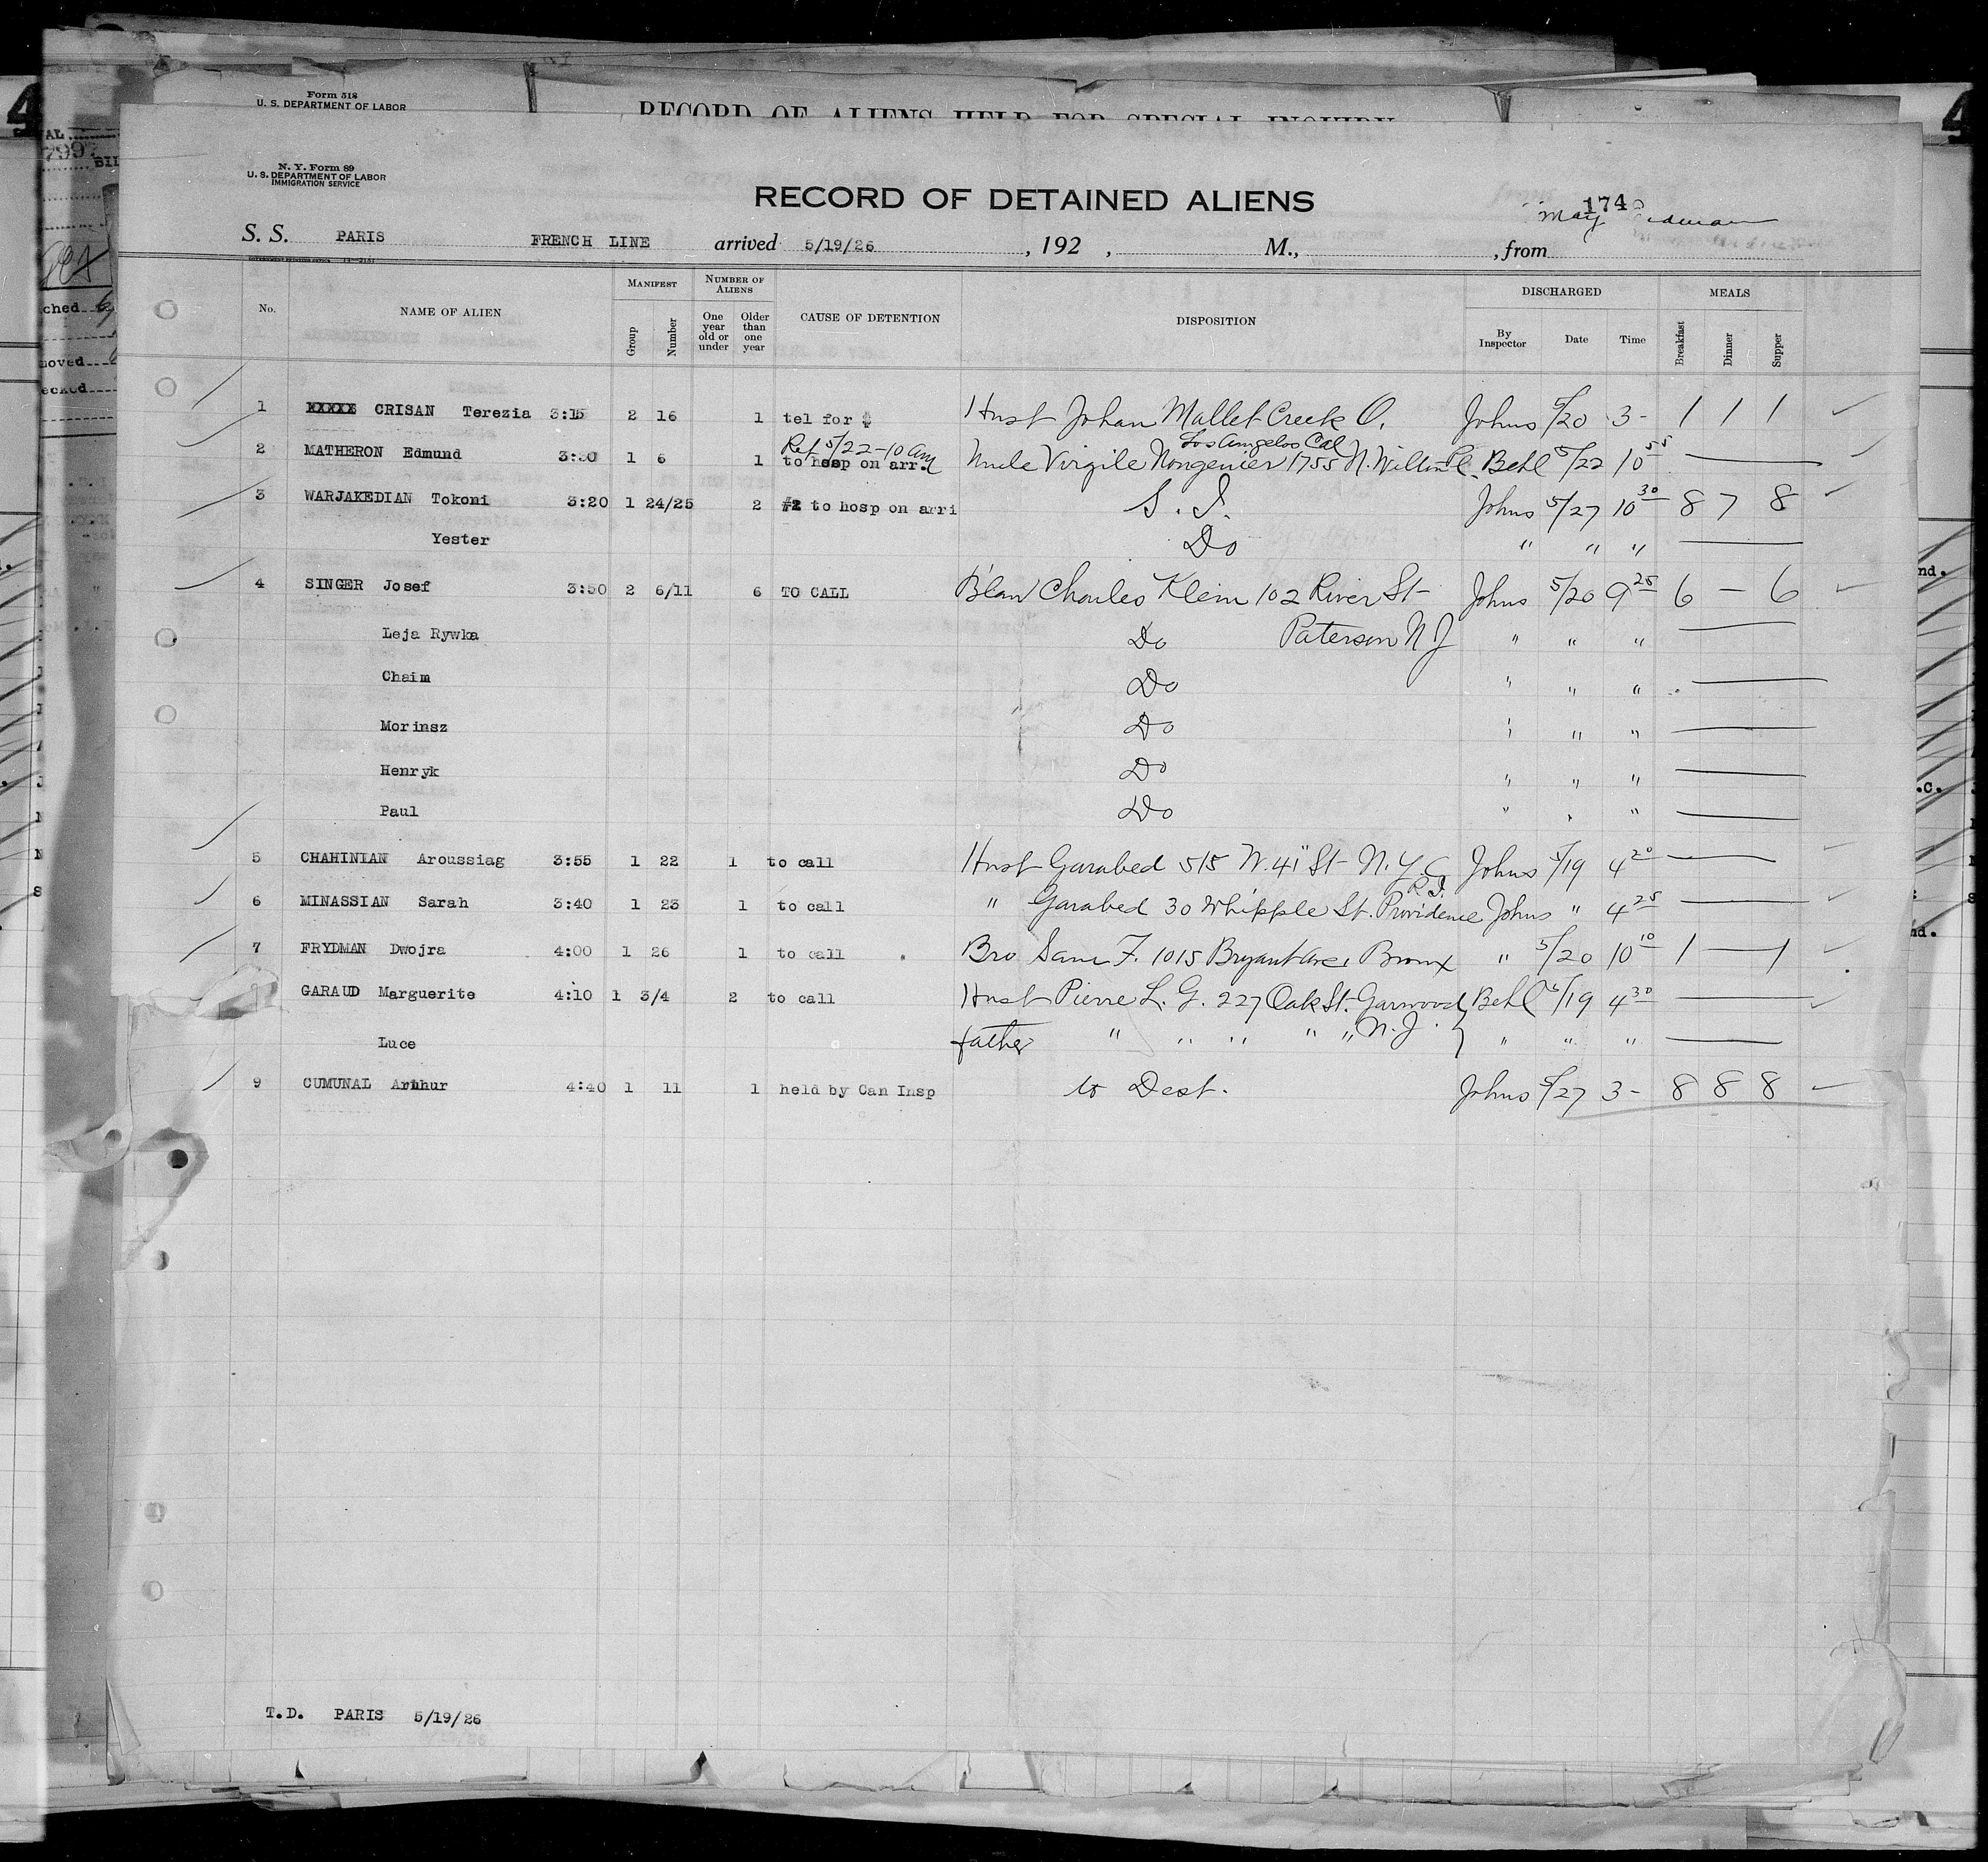 Form 518
U. S. DEPARTMENT OF LABOR
RECORD OF ALIENS HELD FOR SPECIAL INQUIRY
N. Y. Form 89
U. S. DEPARTMENT OF LABOR
IMMIGRATION SERVICE
RECORD OF DETAINED ALIENS
174
May
S. S. PARIS FRENCH LINE arrived 5/19/26, 192 , M., , from
No. NAME OF ALIEN MANIFEST Group Number NUMBER OF ALIENS One year old or under Older than one year CAUSE OF DETENTION DISPOSITION DISCHARGED By Inspector Date Time MEALS Breakfast Dinner Supper
1 XXXXX CRISAN Terezia 3:15 2 16 1 tel for $ Husb Johan Mallet Creek O. Johns 5/20 3- 1 1 1
Ref 5/22-10 am Los Angelos Cal
2 MATHERON Edmund 3:30 1 6 1 to hosp on arr. Uncle Virgile Nongenier 1755 N. Wilton Pl. Behl 5/22 10 55
3 WARJAKEDIAN Tokoni 3:20 1 24/25 2 #2 to hosp on arri S. I. Johns 5/27 10 30 8 7 8
Yester Do " " "
4 SINGER Josef 3:50 2 6/11 6 TO CALL B'law Charles Klein 102 River St- Johns 5/20 9 25 6 — 6
Leja Rywka Do Paterson N J " " "
Chaim Do " " "
Morinsz Do " " "
Henryk Do " " "
Paul Do " "
5 CHAHINIAN Aroussiag 3:55 1 22 1 to call Husb Garabed 515 W. 41" St N. Y. C Johns 5/19 4 20
R.I.
6 MINASSIAN Sarah 3:40 1 23 1 to call " Garabed 30 Whipple St. Providence Johns " 4 25
7 FRYDMAN Dwojra 4:00 1 26 1 to call Bro Sam F. 1015 Bryant Ave, Bronx " 5/20 10 10 1 — 1
GARAUD Marguerite 4:10 1 3/4 2 to call Husb Pierre L. G. 227 Oak St. Garwood, Behl 5/19 4 30
Luce father " " " " " N. J. " " "
9 CUMUNAL Arthur 4:40 1 11 1 held by Can Insp to Dest. Johns 5/27 3- 8 8 8
T.D. PARIS 5/19/26